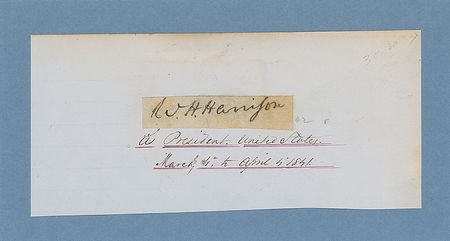 W. H. Harrison
President. United States.
March 4. to April 4. 1841.